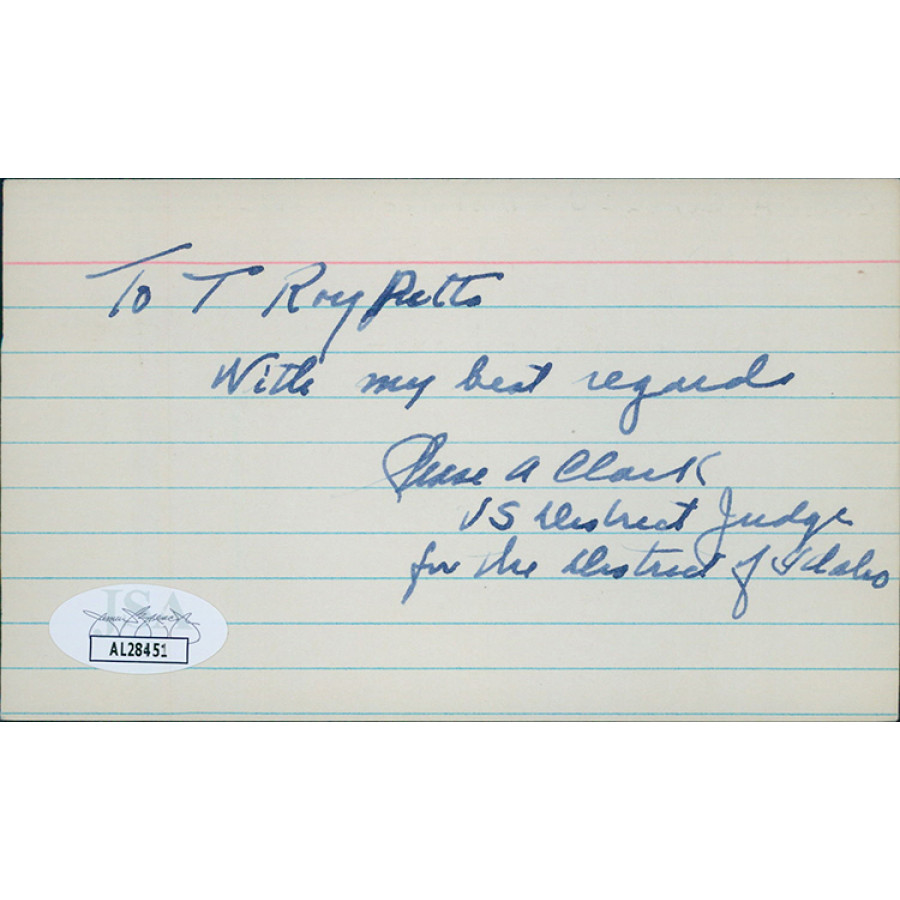 To T Roy Petts
With my best regards
Chase A Clark
US District Judge
for the District of Idaho
JSA
AL28451